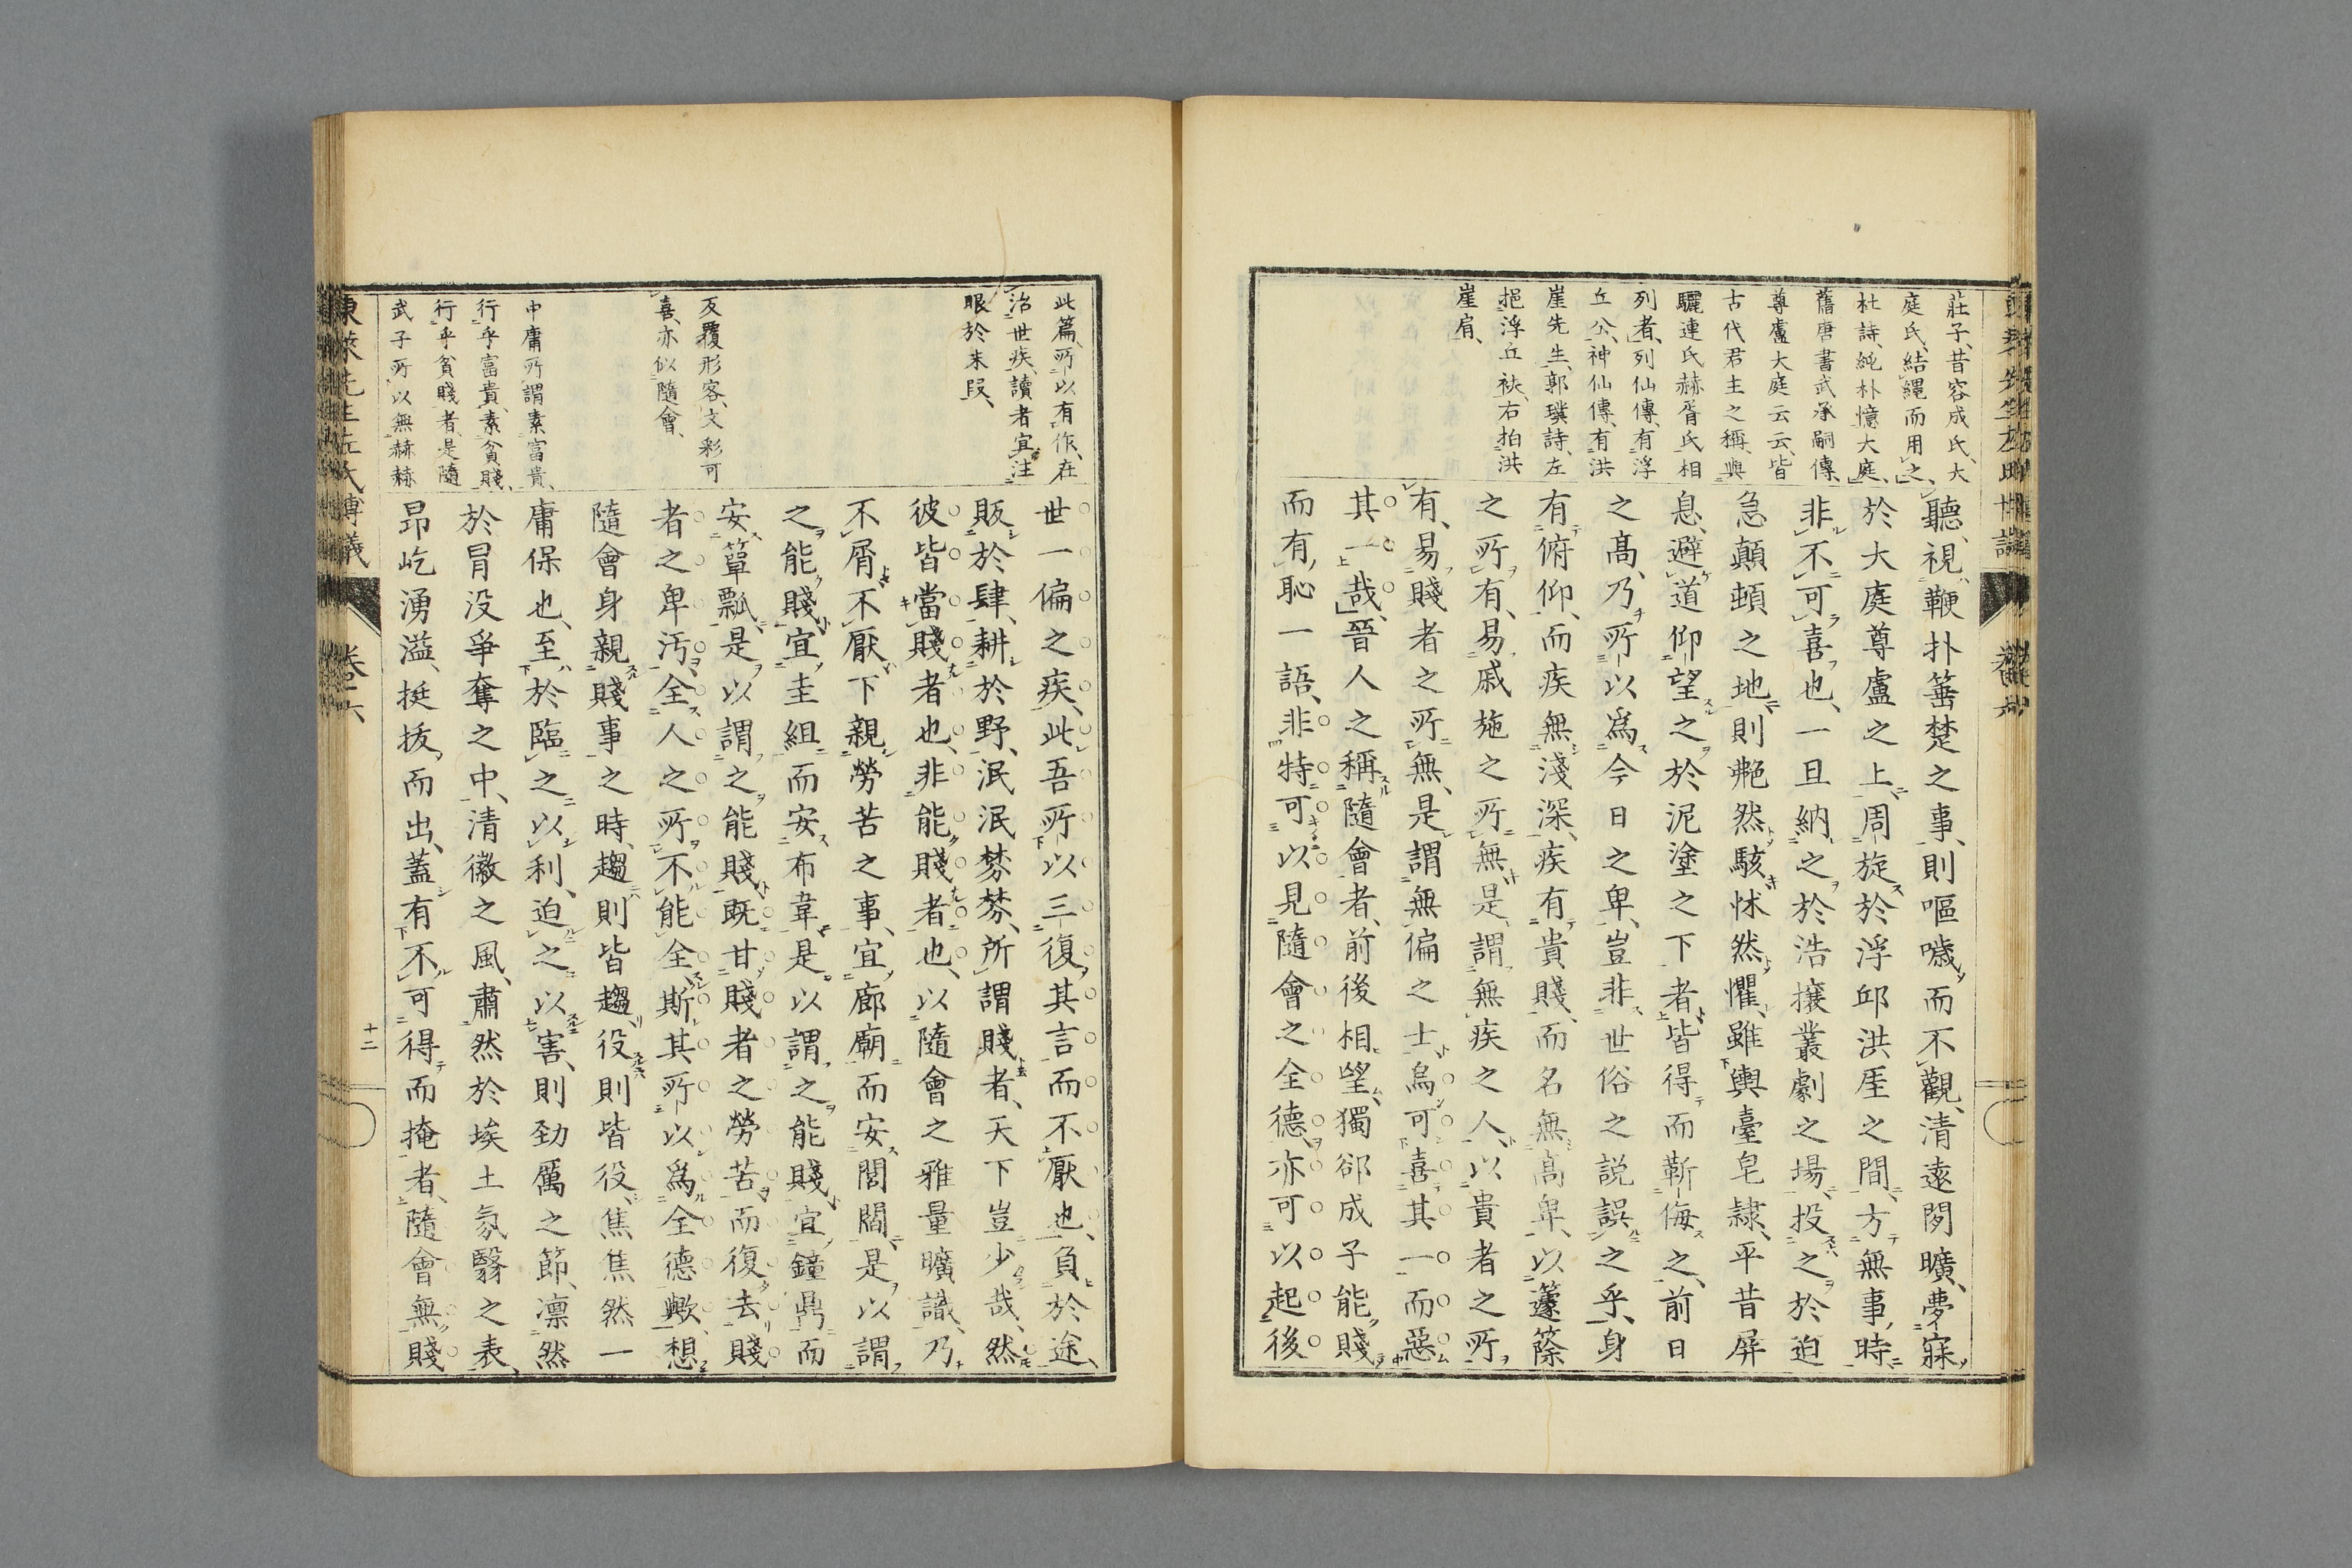 莊子、昔容成氏、大
庭氏、結繩而用之、
杜詩、純朴憶大庭、
舊唐書武承嗣傳、
尊盧大庭云云、皆
古代君主之稱、與
驪連氏赫胥氏相
列者、列仙傳、有浮
丘公、神仙傳、有洪
崖先生、郭璞詩、左
挹浮丘袂、右拍洪
崖肩、
聽、視鞭扑箠楚之事、則嘔噦而不觀、清遠閎曠、夢寐
於大庭尊盧之上、周旋於浮邱洪厓之間、方無事時
非不可喜也、一旦納之於浩攘叢劇之場、投之於迫
急顛頓之地、則艴然駭怵然懼、雖輿臺皂隷、平昔屏
息避道仰望之於泥塗之下者、皆得而靳侮之、前日
之高、乃所以爲今日之卑、豈非世俗之説誤之乎、身
有俯仰、而疾無淺深、疾有貴賤、而名無高卑、以籧篨
之所有、易戚施之所無、是謂無疾之人、以貴者之所
有、易賤者之所無、是謂無偏之士、烏可喜其一而惡
其一哉、晉人之稱隨會者、前後相望、獨郤成子能賤
而有恥一語、非特可以見隨會之全德、亦可以起後
此篇、所以有作、在
治世疾、讀者宜注
眼於末段、
反覆形容、文彩可
喜、亦似隨會、
中庸所謂素富貴、
行乎富貴、素貧賤、
行乎貧賤者、是隨
武子所以無赫赫
世一偏之疾、此吾所以三復其言而不厭也、負於途、
販於肆、耕於野、泯泯棼棼、所謂賤者、天下豈少哉、然
彼皆當賤者也、非能賤者也、以隨會之雅量曠識、乃
不屑不厭、下親勞苦之事、宜廊廟而安閭閻、是以謂
之能賤、宜圭組而安布韋、是以謂之能賤、宜鐘鼎而
安簞瓢、是以謂之能賤、既甘賤者之勞苦、而復去賤
者之卑汚、全人之所不能全、斯其所以爲全德歟、想
隨會身親賤事之時、趨則皆趨、役則皆役、焦焦然一
庸保也、至於臨之以利、迫之以害、則勁厲之節、凛然
於冒没爭奪之中、清徽之風、肅然於埃土氛翳之表、
昂屹湧溢、挺拔而出、蓋有不可得而掩者、隨會無賤
東萊先生左氏博議
卷二六
十二